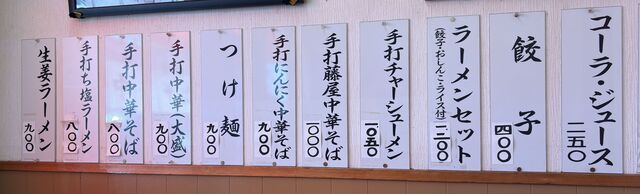 コーラ・ジュース 二五〇
餃子 四〇〇
ラーメンセット
(餃子・おしんこ・ライス付) 一二〇〇
手打チャーシューメン 一〇五〇
手打藤屋中華そば 一〇〇〇
手打にんにく中華そば 九〇〇
つけ麺 九〇〇
手打中華(大盛) 九〇〇
手打中華そば 八〇〇
手打ち塩ラーメン 八〇〇
生姜ラーメン 九〇〇